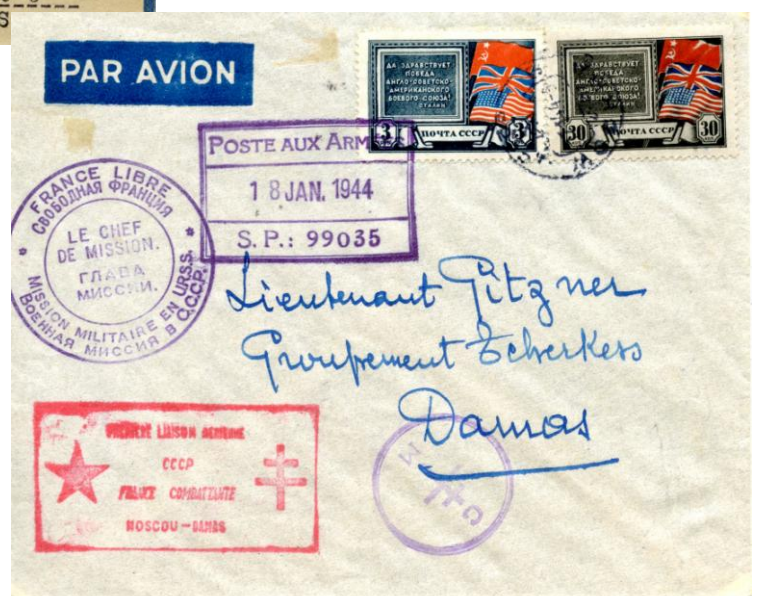 S
PAR AVION
ДА ЗДРАВСТВУЕТ
ПОБЕДА
АНГЛО-СОВЕТСКО-
АМЕРИКАНСКОГО
БОЕВОГО СОЮЗА!
СТАЛИН
3 ПОЧТА СССР 3
ДА ЗДРАВСТВУЕТ
ПОБЕДА
АНГЛО-СОВЕТСКО-
АМЕРИКАНСКОГО
БОЕВОГО СОЮЗА!
СТАЛИН
30 ПОЧТА СССР 30
POSTE AUX ARM
18 JAN. 1944
S. P.: 99035
FRANCE LIBRE
СВОБОДНАЯ ФРАНЦИЯ
LE CHEF
DE MISSION.
ГЛАВА
МИССИИ.
MISSION MILITAIRE EN U.R.S.S.
ВОЕННАЯ МИССИЯ В С.С.С.Р.
Lieutenant Gitzner
Groupement Tcherkess
Damas
PREMIÈRE LIAISON AÉRIENNE
CCCP
FRANCE COMBATTANTE
MOSCOU-DAMAS